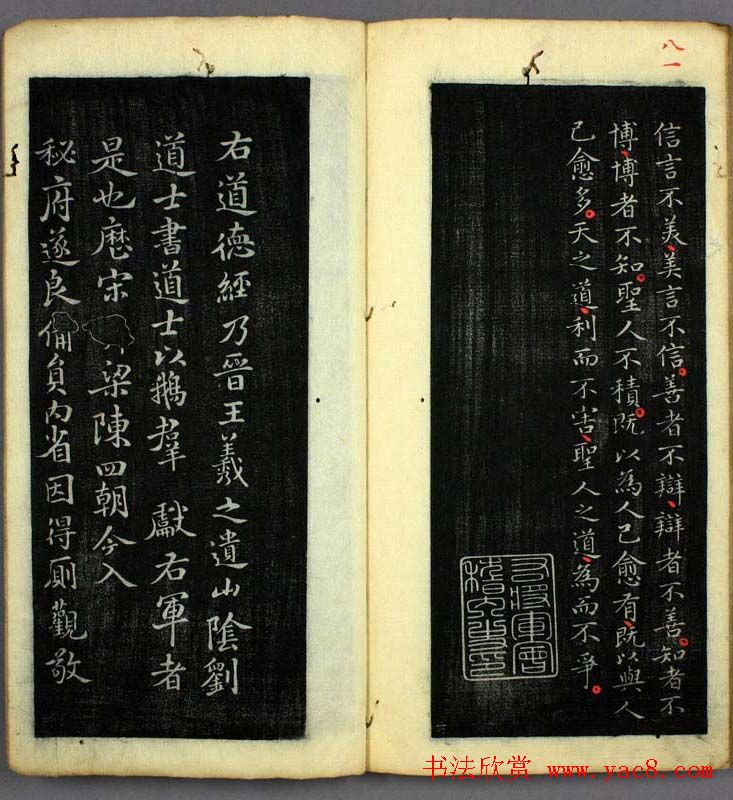 八一
信言不美美言不信善者不辯辯者不善知者不
博博者不知聖人不積既以為人己愈有既以與人
己愈多天之道利而不害聖人之道為而不爭
右將軍會
稽內史印
右道德經乃晉王羲之遺山陰劉
道士書道士以鵝羣獻右軍者
是也歷宋梁陳四朝今入
秘府遂良備員內省因得願觀敬
书法欣赏 www.yac8.com